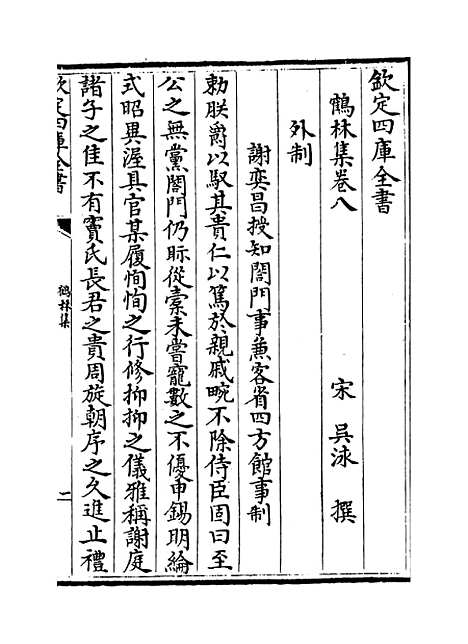 欽定四庫全書
鶴林集卷八
宋 吳泳 撰
外制
謝奕昌授知閤門事兼客省四方館事制
勅朕爵以馭其貴仁以篤於親戚畹不除侍臣固曰至
公之無黨閤門仍眎從橐未嘗寵數之不優申錫明綸
式昭異渥具官某履恂恂之行修抑抑之儀雅稱謝庭
諸子之佳不有竇氏長君之貴周旋朝序之久進止禮
欽定四庫全書
鶴林集